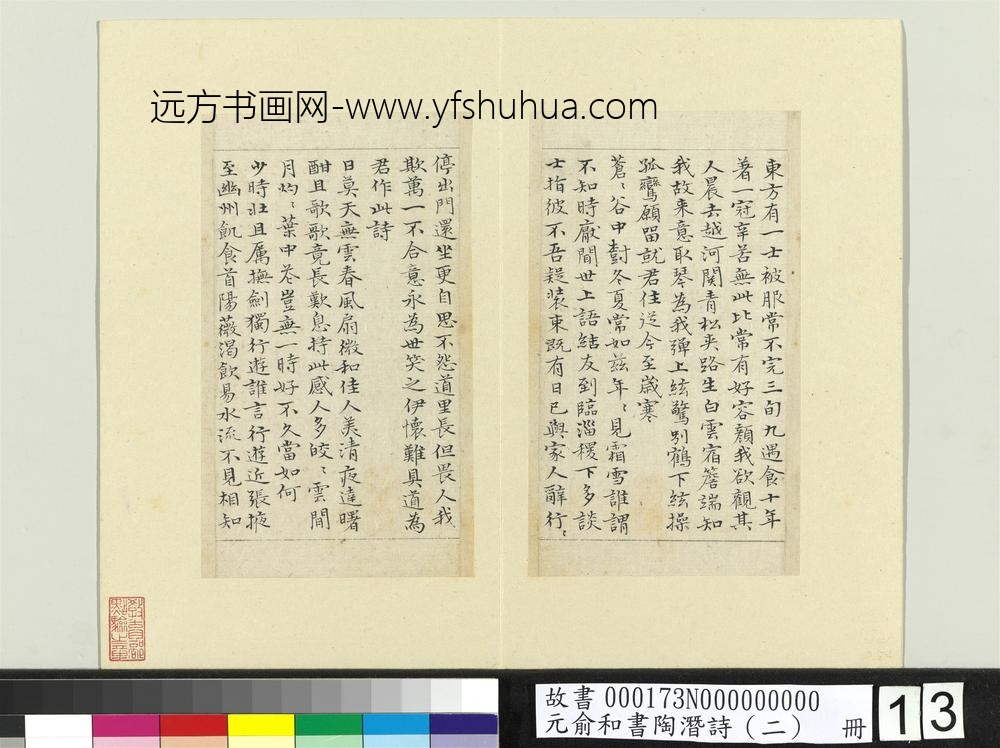 远方书画网-www.yfshuhua.com
東方有一士被服常不完三旬九遇食十年
著一冠辛苦無此比常有好容顏我欲觀其
人晨去越河関青松夾路生白雲宿簷端知
我故来意取琴為我弹上絃驚別鶴下絃操
孤鸞願留就君住從今至歲寒
蒼〻谷中樹冬夏常如兹年〻見霜雪誰謂
不知時厭聞世上語結友到臨淄稷下多談
士指彼不吾疑装束既有日已與家人辭行〻
停出門還坐更自思不怨道里長但畏人我
欺萬一不合意永為世笑之伊懷難具道為
君作此詩
日莫天無雲春風扇微和佳人美清夜達曙
酣且歌歌竟長歎息持此感人多皎〻雲間
月灼〻葉中花豈無一時好不久當如何
少時壯且厲撫劍獨行遊誰言行遊近張掖
至幽州飢食首陽薇渴飲易水流不見相知
教育部
點驗之章
故書 000173N000000000
元俞和書陶潛詩（二） 冊
13